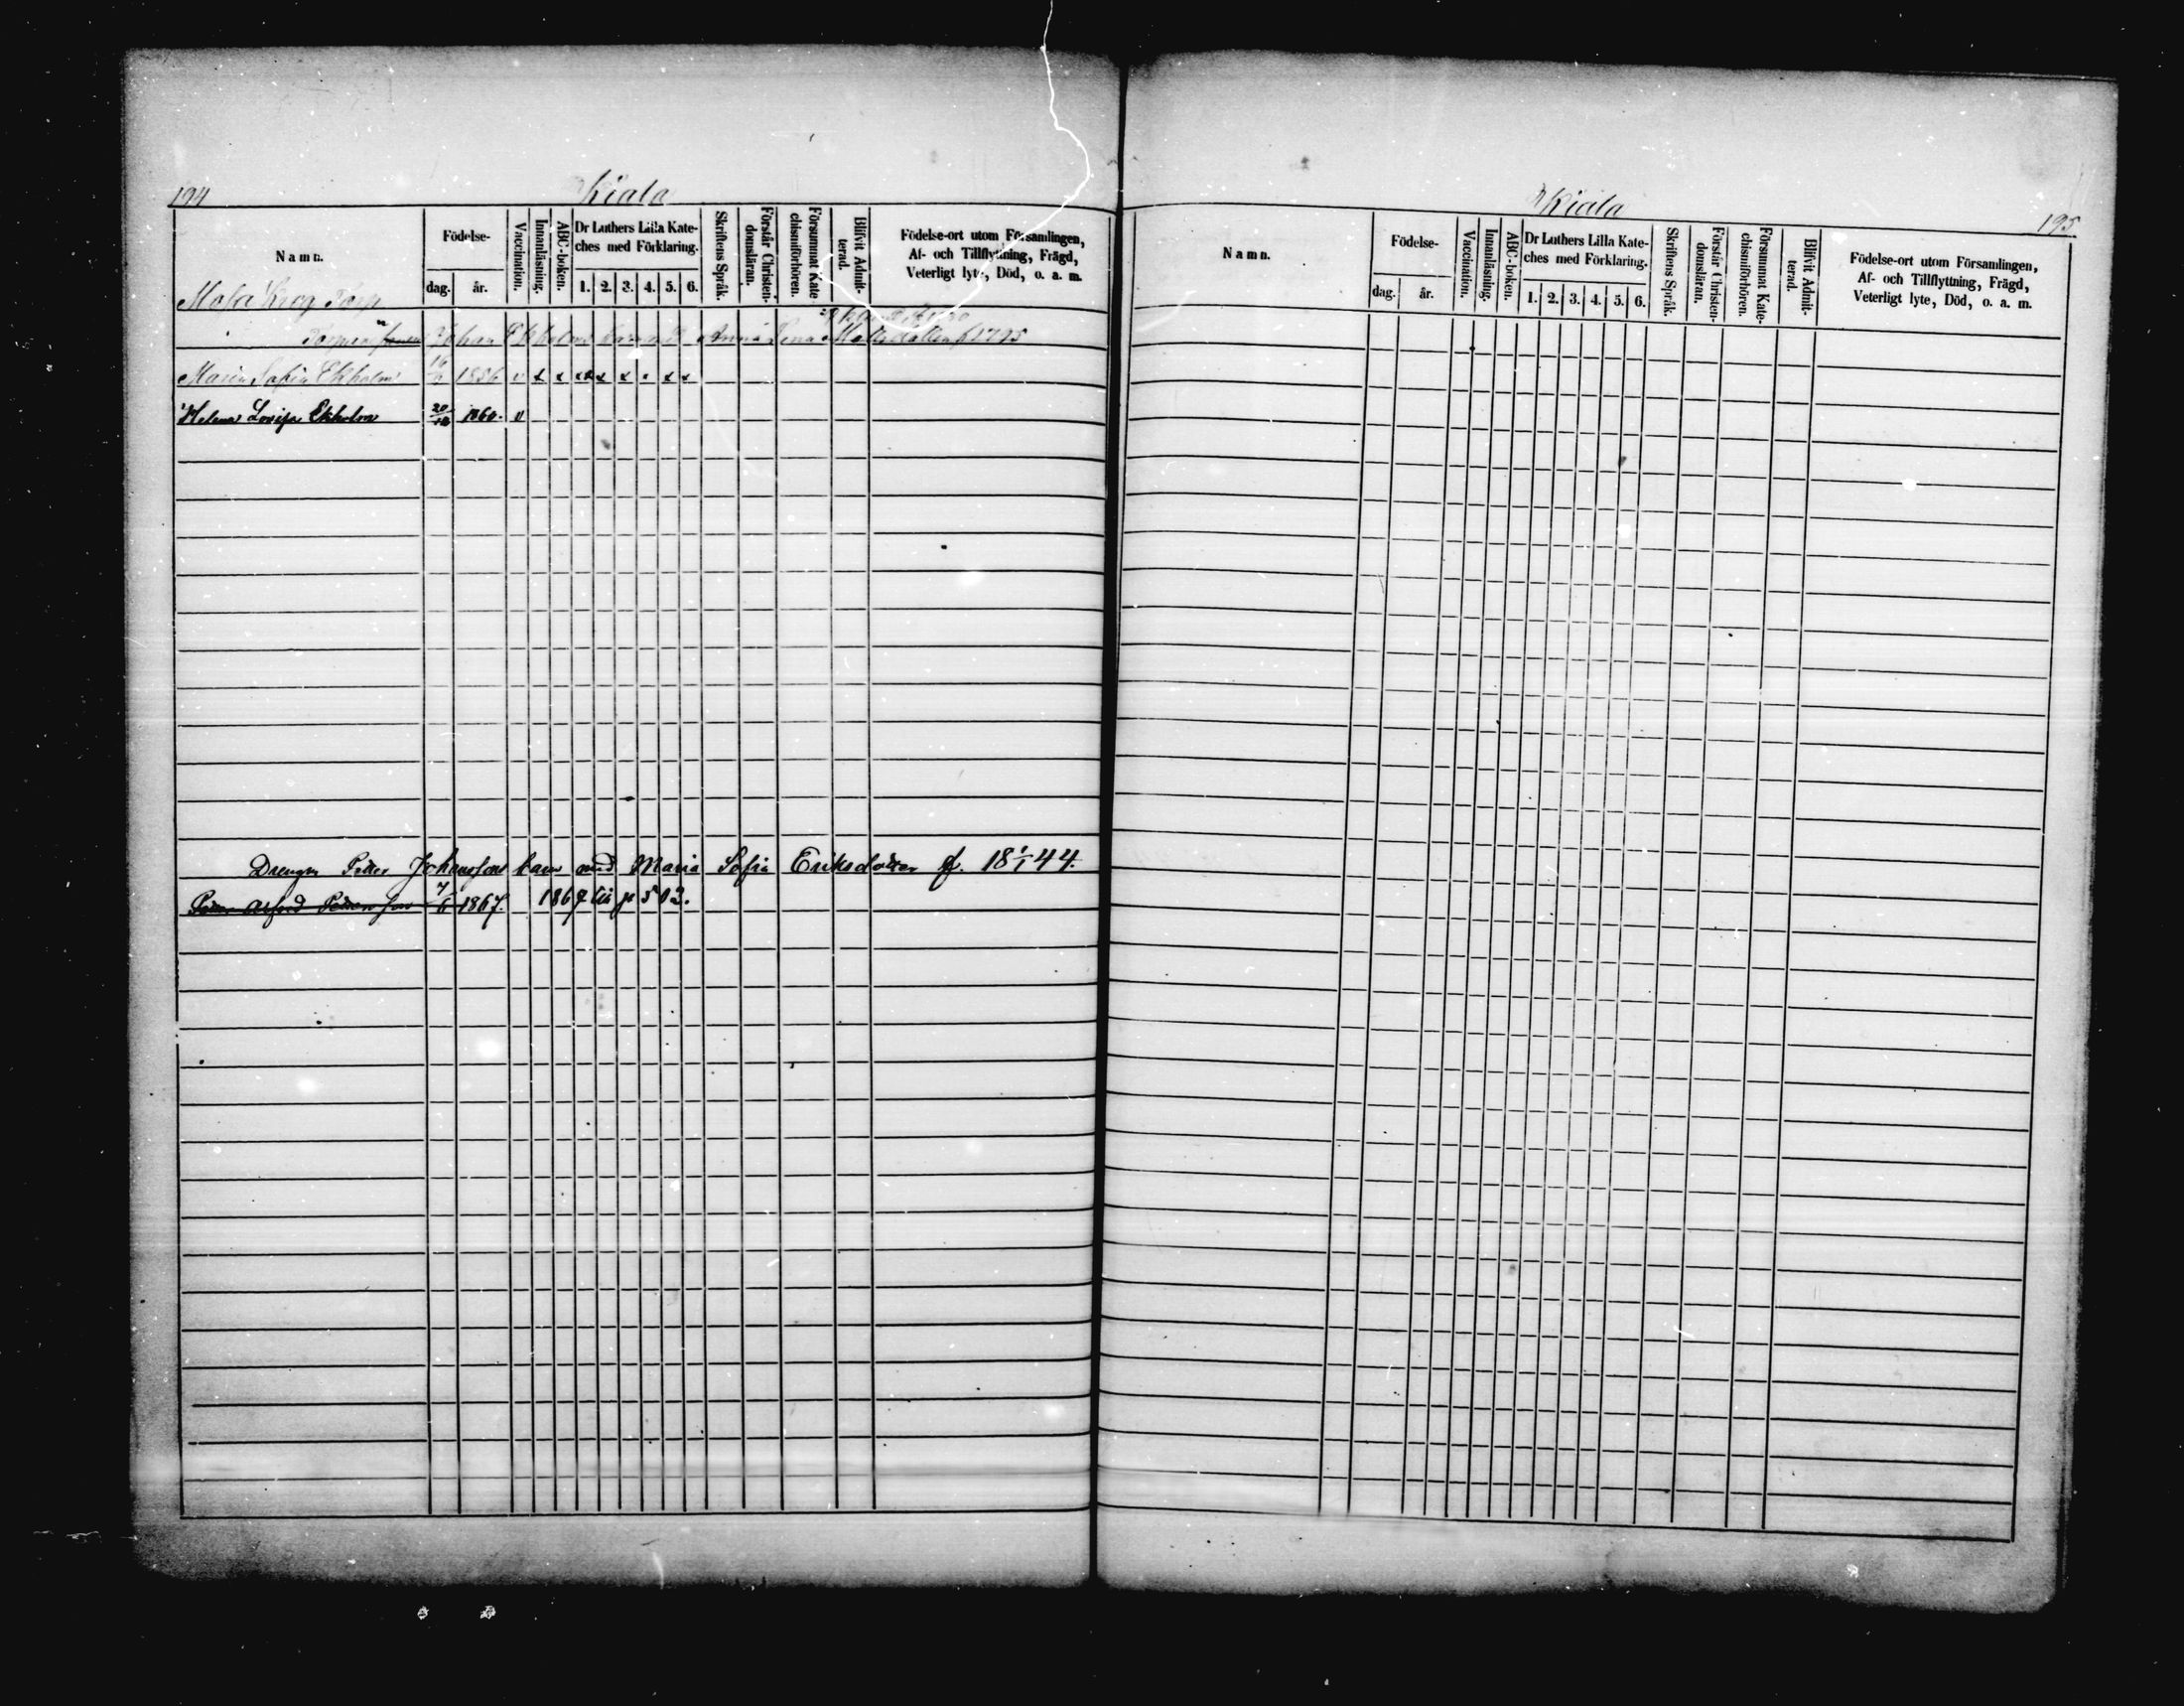 194
Kiala
Namn.
Födelse-
dag.
år.
Vaccination.
Innanläsning.
ABC-boken.
Dr Luthers Lilla Kate-
ches med Förklaring.
1. 2. 3. 4. 5. 6.
Skriftens Språk.
Förstår Christen-
domsläran.
Försummat Kate
chismiförhören.
Blifvit Admit-
terad.
Födelse-ort utom Församlingen,
Af- och Tillflyttning, Frägd,
Veterligt lyte, Död, o. a. m.
Torp
Johan Ekholms barn med Anna Lena 1795
Maria Sofia Ekholm 1856 v x x x x x x x
Helena Lovisa Ekholm 20/12 1860. v
Drengen Petter Johanssons barn med Maria Sofia Eriksdotter f. 18 1/1 44.
Petter Alfred Pettersson 7/6 1867. 1867 till p 503.
Kiala
195.
Namn.
Födelse-
dag.
år.
Vaccination.
Innanläsning.
ABC-boken.
Dr Luthers Lilla Kate-
ches med Förklaring.
1. 2. 3. 4. 5. 6.
Skriftens Språk.
Förstår Christen-
domsläran.
Försummat Kate-
chismiförhören.
Blifvit Admit-
terad.
Födelse-ort utom Församlingen,
Af- och Tillflyttning, Frägd,
Veterligt lyte, Död, o. a. m.